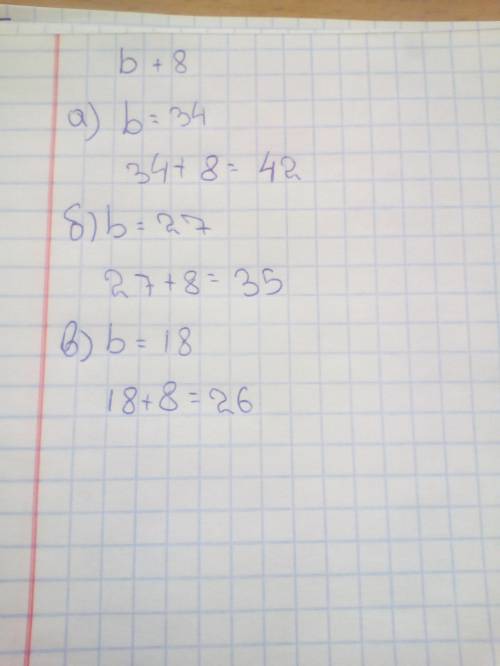 b + 8
а) b = 34
34 + 8 = 42
б) b = 27
27 + 8 = 35
в) b = 18
18 + 8 = 26